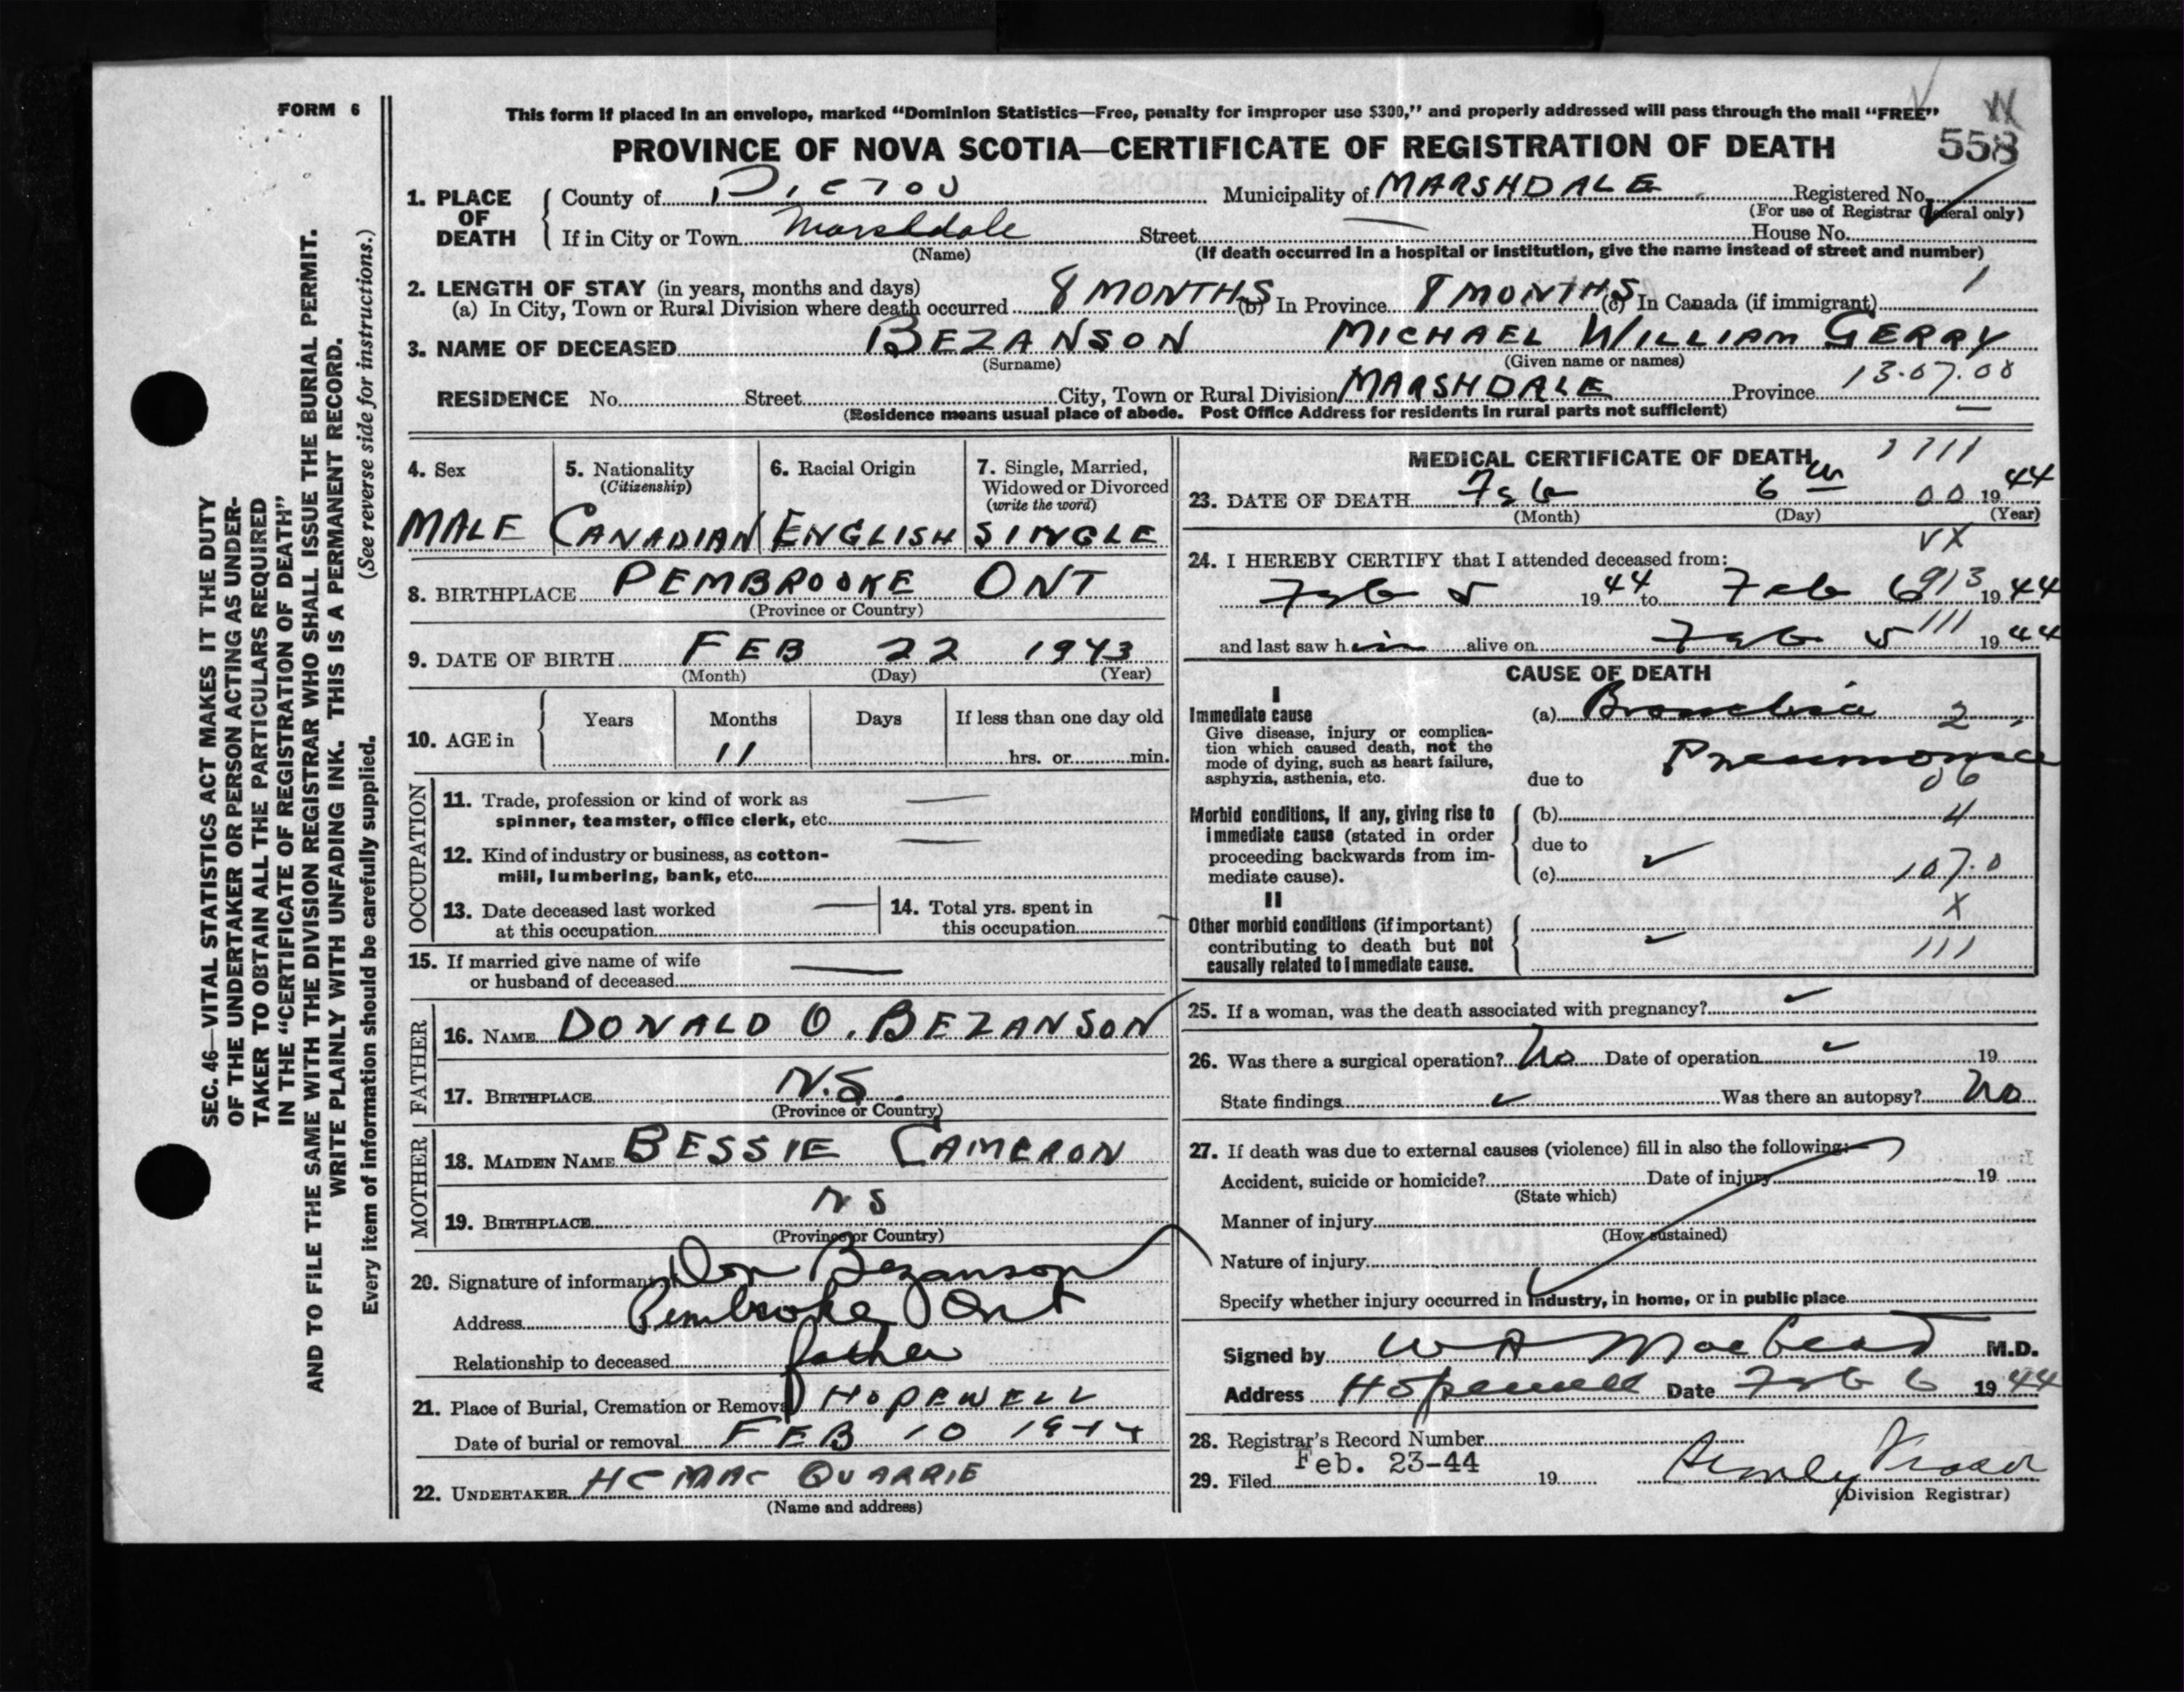 FORM 6
This form if placed in an envelope, marked "Dominion Statistics—Free, penalty for improper use $300," and properly addressed will pass through the mail "FREE"
PROVINCE OF NOVA SCOTIA—CERTIFICATE OF REGISTRATION OF DEATH 558
1. PLACE OF DEATH
County of PICTOU Municipality of MARSHDALE Registered No.
(For use of Registrar General only)
If in City or Town Marshdale Street — House No.
(Name) (If death occurred in a hospital or institution, give the name instead of street and number)
2. LENGTH OF STAY (in years, months and days)
(a) In City, Town or Rural Division where death occurred 8 MONTHS (b) In Province 8 MONTHS (c) In Canada (if immigrant)
3. NAME OF DECEASED BEZANSON MICHAEL WILLIAM GERRY
(Surname) (Given name or names)
13.07.00
RESIDENCE No. Street City, Town or Rural Division MARSHDALE Province
(Residence means usual place of abode. Post Office Address for residents in rural parts not sufficient)
4. Sex
MALE
5. Nationality
(Citizenship)
CANADIAN
6. Racial Origin
ENGLISH
7. Single, Married,
Widowed or Divorced
(write the word)
SINGLE
8. BIRTHPLACE PEMBROOKE ONT
(Province or Country)
9. DATE OF BIRTH FEB 22 1943
(Month) (Day) (Year)
10. AGE in
Years Months Days If less than one day old
11 hrs. or min.
OCCUPATION
11. Trade, profession or kind of work as —
spinner, teamster, office clerk, etc.
12. Kind of industry or business, as cotton- —
mill, lumbering, bank, etc.
13. Date deceased last worked —
at this occupation
14. Total yrs. spent in
this occupation
15. If married give name of wife —
or husband of deceased
FATHER
16. NAME DONALD O. BEZANSON
17. BIRTHPLACE N.S.
(Province or Country)
MOTHER
18. MAIDEN NAME BESSIE CAMERON
19. BIRTHPLACE N S
(Province or Country)
20. Signature of informant Don Bezanson
Address Pembroke Ont
Relationship to deceased father
21. Place of Burial, Cremation or Removal HOPEWELL
Date of burial or removal FEB 10 1944
22. UNDERTAKER HC MAC QUARRIE
(Name and address)
MEDICAL CERTIFICATE OF DEATH
23. DATE OF DEATH Feb 6 th 00 19 44
(Month) (Day) (Year)
24. I HEREBY CERTIFY that I attended deceased from:
Feb 5 19 44 to Feb 6 19 44
and last saw him alive on Feb 5 19 44
CAUSE OF DEATH
I
Immediate cause
Give disease, injury or complica-
tion which caused death, not the
mode of dying, such as heart failure,
asphyxia, asthenia, etc.
(a) Bronchia 2
Pneumonia
due to 06
Morbid conditions, if any, giving rise to
immediate cause (stated in order
proceeding backwards from im-
mediate cause).
(b) 4
due to
(c) 107.0
II
X
Other morbid conditions (if important)
contributing to death but not
causally related to immediate cause.
111
25. If a woman, was the death associated with pregnancy?
26. Was there a surgical operation? No Date of operation 19
State findings Was there an autopsy? No
27. If death was due to external causes (violence) fill in also the following:
Accident, suicide or homicide? Date of injury 19
(State which)
Manner of injury
(How sustained)
Nature of injury
Specify whether injury occurred in industry, in home, or in public place
Signed by W A MacLeod M.D.
Address Hopewell Date Feb 6 19 44
28. Registrar's Record Number
29. Filed Feb. 23-44 19
(Division Registrar)
SEC. 46—VITAL STATISTICS ACT MAKES IT THE DUTY
OF THE UNDERTAKER OR PERSON ACTING AS UNDER-
TAKER TO OBTAIN ALL THE PARTICULARS REQUIRED
IN THE "CERTIFICATE OF REGISTRATION OF DEATH"
AND TO FILE THE SAME WITH THE DIVISION REGISTRAR WHO SHALL ISSUE THE BURIAL PERMIT.
WRITE PLAINLY WITH UNFADING INK. THIS IS A PERMANENT RECORD.
Every item of information should be carefully supplied. (See reverse side for instructions.)